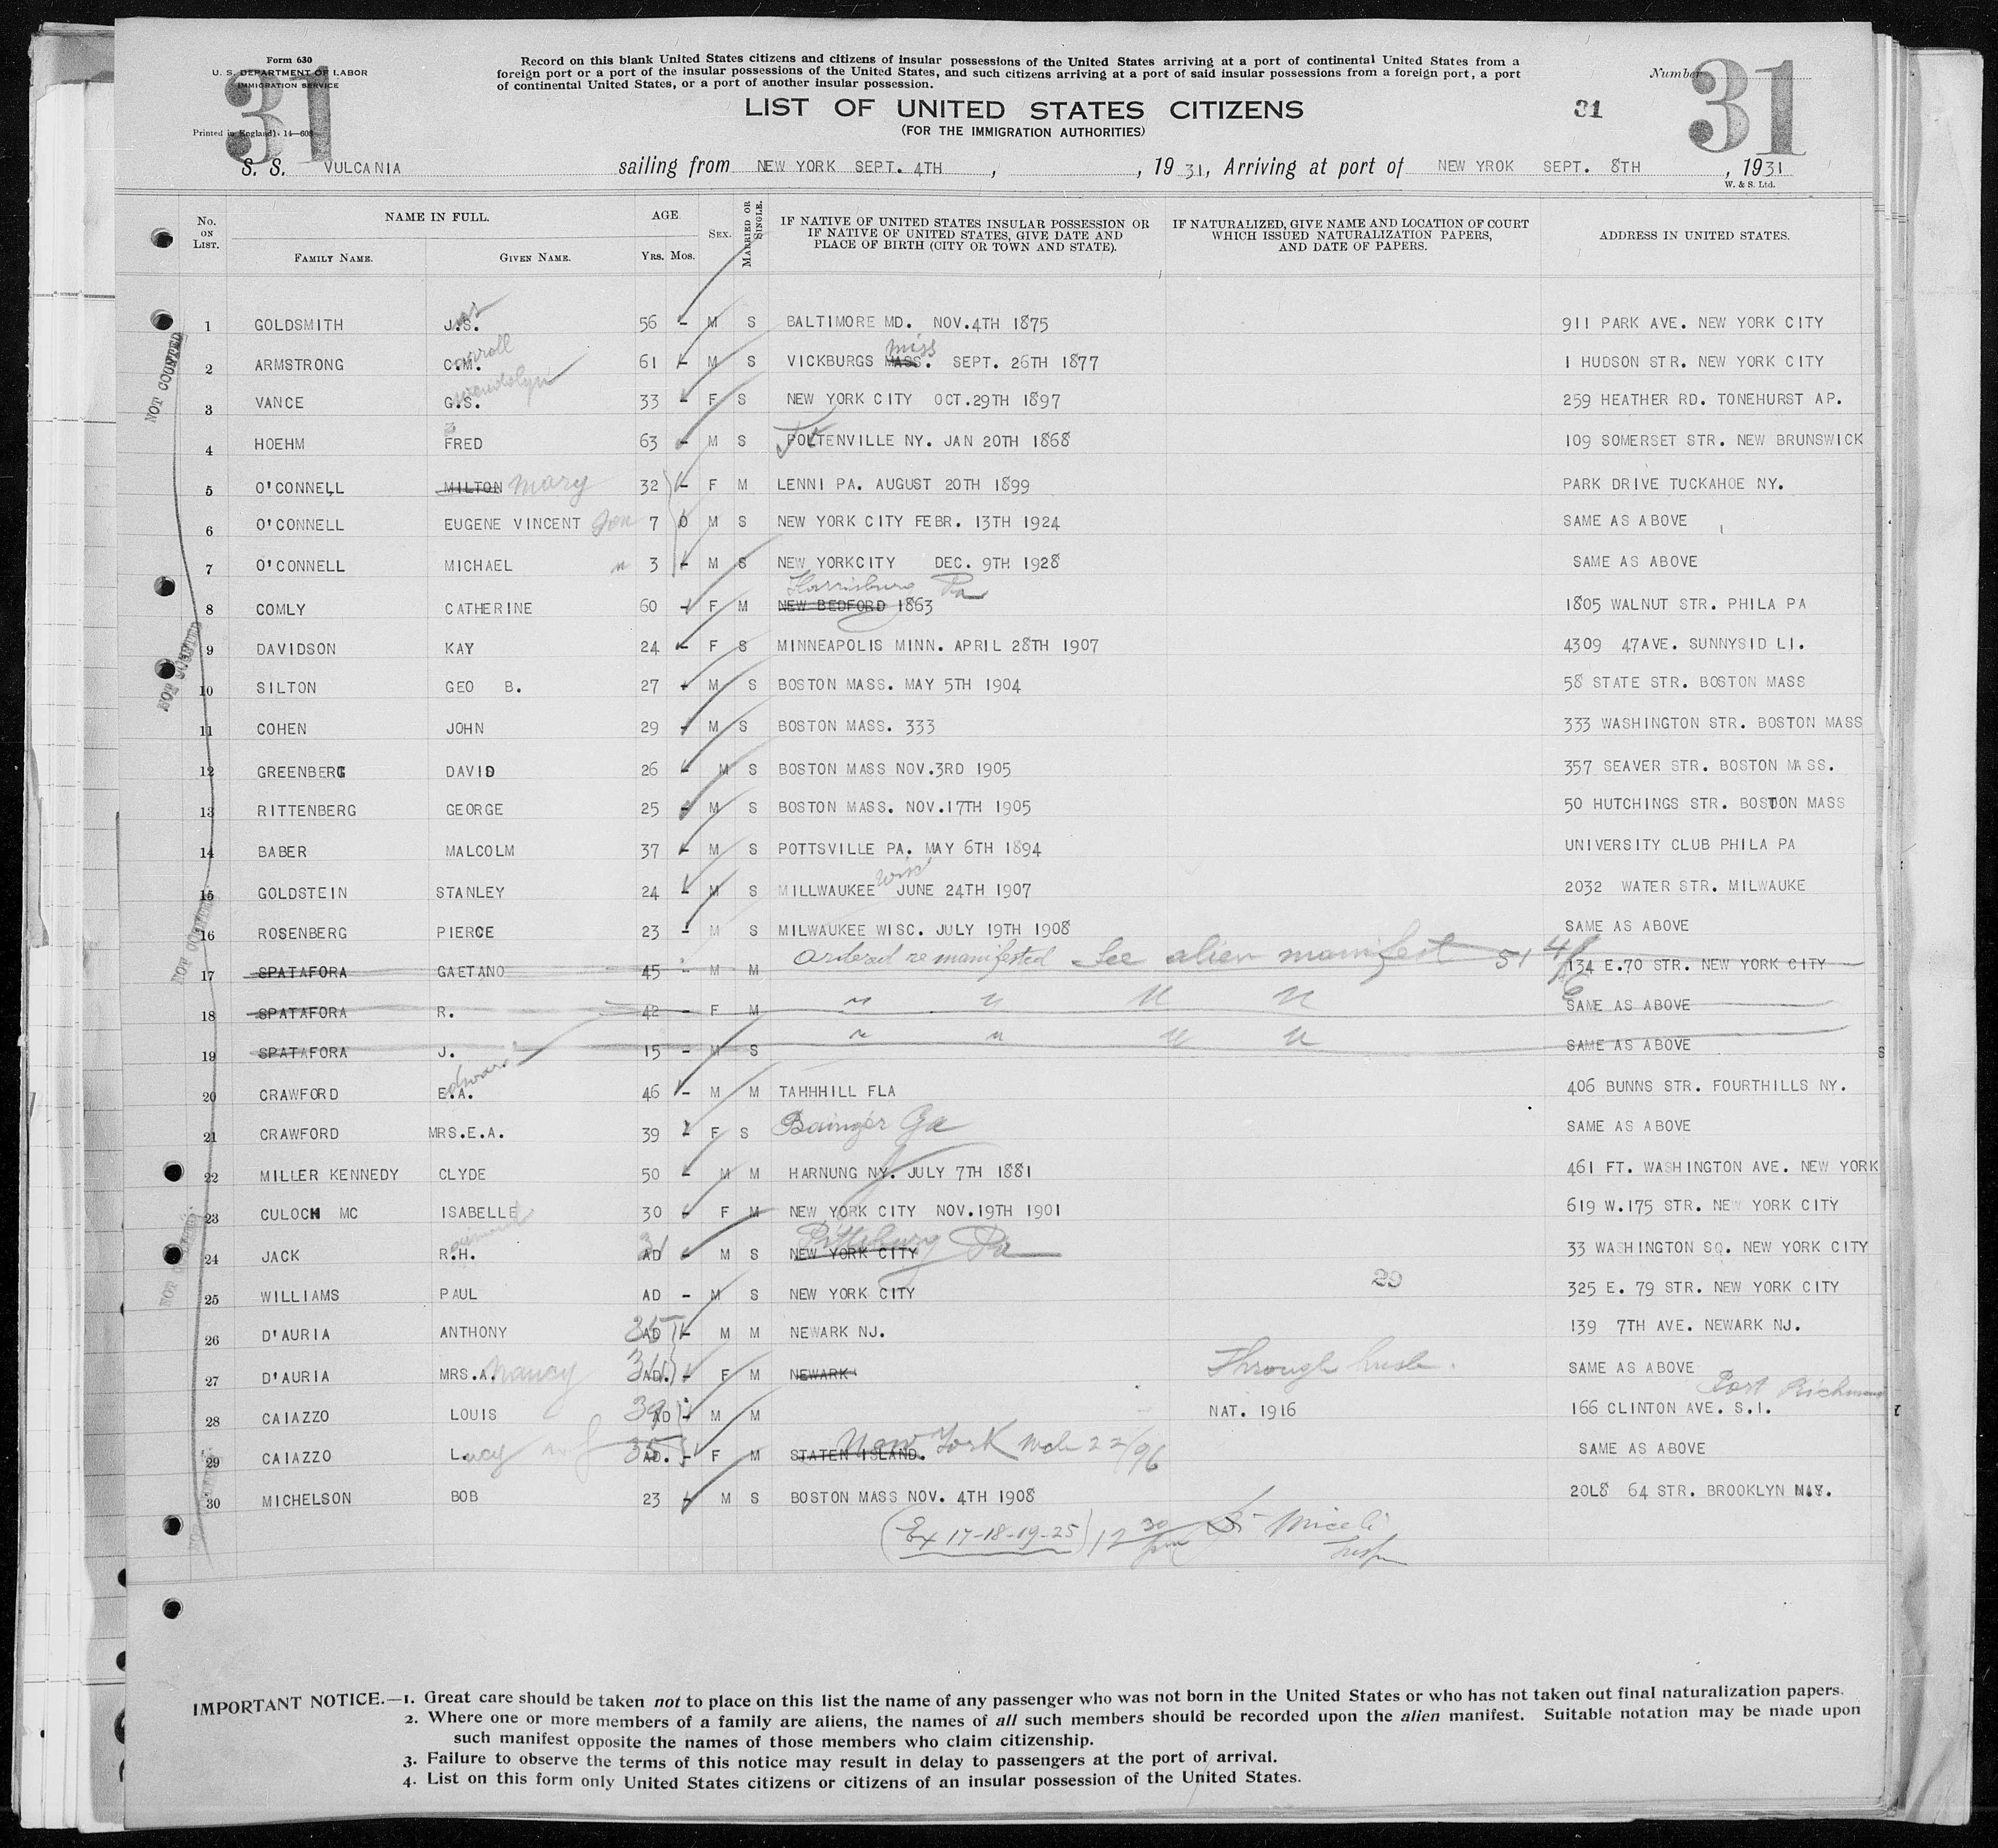 Form 630
U. S. DEPARTMENT OF LABOR
IMMIGRATION SERVICE
Printed in England) 14—608
31
Record on this blank United States citizens and citizens of insular possessions of the United States arriving at a port of continental United States from a
foreign port or a port of the insular possessions of the United States, and such citizens arriving at a port of said insular possessions from a foreign port, a port
of continental United States, or a port of another insular possession.
Number
31
LIST OF UNITED STATES CITIZENS
31
(FOR THE IMMIGRATION AUTHORITIES)
S. S. VULCANIA sailing from NEW YORK SEPT. 4TH , , 19 31, Arriving at port of NEW YROK SEPT. 8TH , 1931
W. & S. Ltd.
No. ON LIST. NAME IN FULL. AGE. SEX. MARRIED OR SINGLE. IF NATIVE OF UNITED STATES INSULAR POSSESSION OR IF NATIVE OF UNITED STATES, GIVE DATE AND PLACE OF BIRTH (CITY OR TOWN AND STATE). IF NATURALIZED, GIVE NAME AND LOCATION OF COURT WHICH ISSUED NATURALIZATION PAPERS, AND DATE OF PAPERS. ADDRESS IN UNITED STATES.
FAMILY NAME. GIVEN NAME. YRS. MOS.
1 GOLDSMITH J.S. 56 - M S BALTIMORE MD. NOV.4TH 1875 911 PARK AVE. NEW YORK CITY
2 ARMSTRONG C.M. 61 - M S VICKBURGS MASS. Miss SEPT. 26TH 1877 1 HUDSON STR. NEW YORK CITY
3 VANCE G.S. Gwendolyn 33 - F S NEW YORK CITY OCT.29TH 1897 259 HEATHER RD. TONEHURST AP.
4 HOEHM FRED 63 - M S POLTENVILLE NY. JAN 20TH 1868 109 SOMERSET STR. NEW BRUNSWICK
5 O'CONNELL MILTON Mary 32 - F M LENNI PA. AUGUST 20TH 1899 PARK DRIVE TUCKAHOE NY.
6 O'CONNELL EUGENE VINCENT Son 7 0 M S NEW YORK CITY FEBR. 13TH 1924 SAME AS ABOVE
7 O'CONNELL MICHAEL " 3 - M S NEW YORKCITY DEC. 9TH 1928 SAME AS ABOVE
8 COMLY CATHERINE 60 - F M NEW BEDFORD Harrisburg Pa 1863 1805 WALNUT STR. PHILA PA
9 DAVIDSON KAY 24 - F S MINNEAPOLIS MINN. APRIL 28TH 1907 4309 47AVE. SUNNYSID LI.
10 SILTON GEO B. 27 - M S BOSTON MASS. MAY 5TH 1904 58 STATE STR. BOSTON MASS
11 COHEN JOHN 29 - M S BOSTON MASS. 333 333 WASHINGTON STR. BOSTON MASS
12 GREENBERG DAVID 26 - M S BOSTON MASS NOV.3RD 1905 357 SEAVER STR. BOSTON MASS.
13 RITTENBERG GEORGE 25 - M S BOSTON MASS. NOV.17TH 1905 50 HUTCHINGS STR. BOSTON MASS
14 BABER MALCOLM 37 - M S POTTSVILLE PA. MAY 6TH 1894 UNIVERSITY CLUB PHILA PA
15 GOLDSTEIN STANLEY 24 - M S MILLWAUKEE Wisc JUNE 24TH 1907 2032 WATER STR. MILWAUKE
16 ROSENBERG PIERCE 23 - M S MILWAUKEE WISC. JULY 19TH 1908 SAME AS ABOVE
17 SPATAFORA GAETANO 45 - M M Ordered remanifested See alien manifest 51 134 E.70 STR. NEW YORK CITY
18 SPATAFORA R. 42 - F M " " " " SAME AS ABOVE
19 SPATAFORA J. 15 - M S " " " " SAME AS ABOVE
20 CRAWFORD E.A. Edward 46 - M M TAHHHILL FLA 406 BUNNS STR. FOURTHILLS NY.
21 CRAWFORD MRS.E.A. 39 - F S Ga SAME AS ABOVE
22 MILLER KENNEDY CLYDE 50 - M M HARNUNG NY. JULY 7TH 1881 461 FT. WASHINGTON AVE. NEW YORK
23 CULOCH MC ISABELLE 30 - F M NEW YORK CITY NOV.19TH 1901 619 W.175 STR. NEW YORK CITY
24 JACK R.H. AD 31 - M S NEW YORK CITY Pittsburg Pa 33 WASHINGTON SQ. NEW YORK CITY
25 WILLIAMS PAUL AD - M S NEW YORK CITY 29 325 E. 79 STR. NEW YORK CITY
26 D'AURIA ANTHONY AD 35 - M M NEWARK NJ. 139 7TH AVE. NEWARK NJ.
27 D'AURIA MRS.A. Nancy AD. - F M NEWARK Through husb. SAME AS ABOVE
28 CAIAZZO LOUIS AD 39 - M M NAT. 1916 166 CLINTON AVE. S.I. Port Richmond
29 CAIAZZO Lucy wf AD. 35 - F M STATEN ISLAND. New York Mch 22/96 SAME AS ABOVE
30 MICHELSON BOB 23 - M S BOSTON MASS NOV. 4TH 1908 20L8 64 STR. BROOKLYN N.Y.
(Ex 17-18-19-25) 12 30 pm Miceli
Insp
NOT COUNTED
NOT COUNTED
IMPORTANT NOTICE.—1. Great care should be taken not to place on this list the name of any passenger who was not born in the United States or who has not taken out final naturalization papers.
2. Where one or more members of a family are aliens, the names of all such members should be recorded upon the alien manifest. Suitable notation may be made upon
such manifest opposite the names of those members who claim citizenship.
3. Failure to observe the terms of this notice may result in delay to passengers at the port of arrival.
4. List on this form only United States citizens or citizens of an insular possession of the United States.